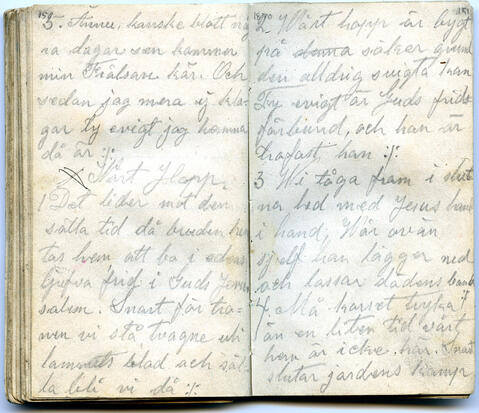 150
5. Ännu, kanske blott nå
ra dagar sen kommer
min Frälsare kär. Och
sedan jag mera ej kla-
gar ty evigt jag hemma
då är :/:
Vårt Hopp.
1 Det lider mot den
sälla tid då bruden hem
tas hem att bo i edens
ljufva frid i Guds Jeru
salem. Snart för tro-
nen vi stå tvagne uti
lammets blod och säl-
la bli vi då :/:
151
2. Wårt hopp är bygt
på denna säker grund
den alldrig svigta kan
Ty evigt är Guds frids
förbund, och han är
trofast, han :/:
3 Wi tåga fram i slut
na led med Jesus hand
i hand, Wår ovän
sjelf han lägger ned
och lossar dödens band
4 Må korset trycka
än en liten tid vårt
hem är icke här. Snart
slutar jordens kamp